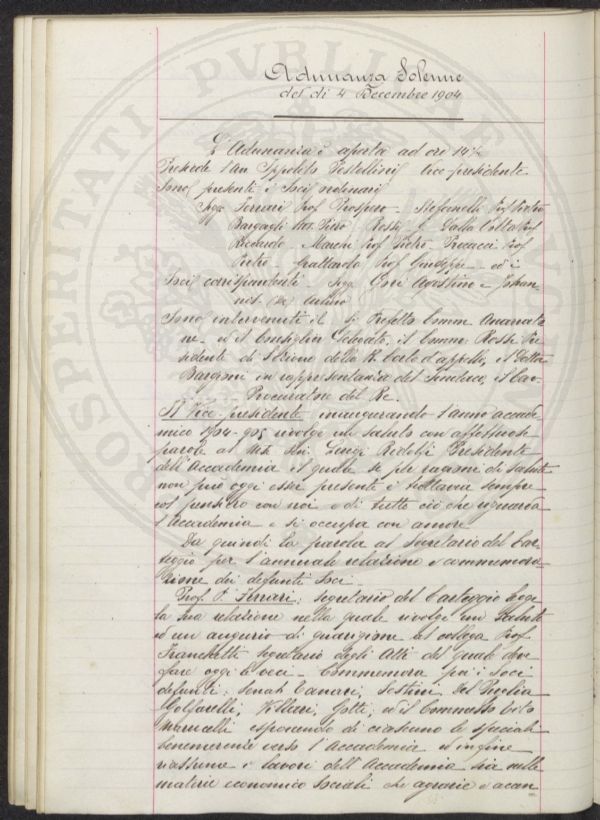 Adunanza Solenne
del dì 4 Decembre 1904
L'Adunanza è aperta ad ore 14 ½
Presiede l'Avv. Ippolito Pestellini Vice-presidente
Sono presenti i Soci ordinari
Sigg. Ferrari Prof. Prospero - Stefanelli Prof. Pietro
Bargagli Piero - Rossi - Dalla Volta Prof
Riccardo - Marchi Prof Pietro - Prof
Pietro - Grattarola Prof Giuseppe - ed i
Soci corrispondenti - Sigg. Agostino e
Sono intervenuti il Prefetto Comm. Annarato
ne - ed il Consigliere Delegato, il Comm: Rossi Pre
sidente di Sezione della R. Corte d'appello, il Dottor
in rappresentanza del Sindaco, il Cav
Procuratore del Re.
Il Vice-presidente inaugurando l'anno accade
mico 1904-905 rivolge un saluto con affettuose
parole al Sen. Luigi Ridolfi Presidente
dell'Accademia il quale se per ragioni di salute
non può oggi esser presente è tuttavia sempre
col pensiero con noi e di tutto ciò che riguarda
l'Accademia e si occupa con amore
Dà quindi la parola al Segretario del Car
teggio per l'annuale relazione e commemora
zione dei defunti Soci -
Prof. P. Ferrari, segretario del Carteggio legge
la sua relazione nella quale rivolge un saluto
ed un augurio di guarigione al collega Prof.
Franchetti segretario degli Atti del quale deve
fare oggi le veci - Commemora poi i Soci
defunti; Senat. Canevari, Del Puglia
Villari, Gotti, ed il Commesso
esponendo di ciascuno le speciali
benemerenze verso l'Accademia ed infine
riassume i lavori dell'Accademia sia nelle
materie economico sociali che agrarie e accen
PROSPERITATI PVBLICAE